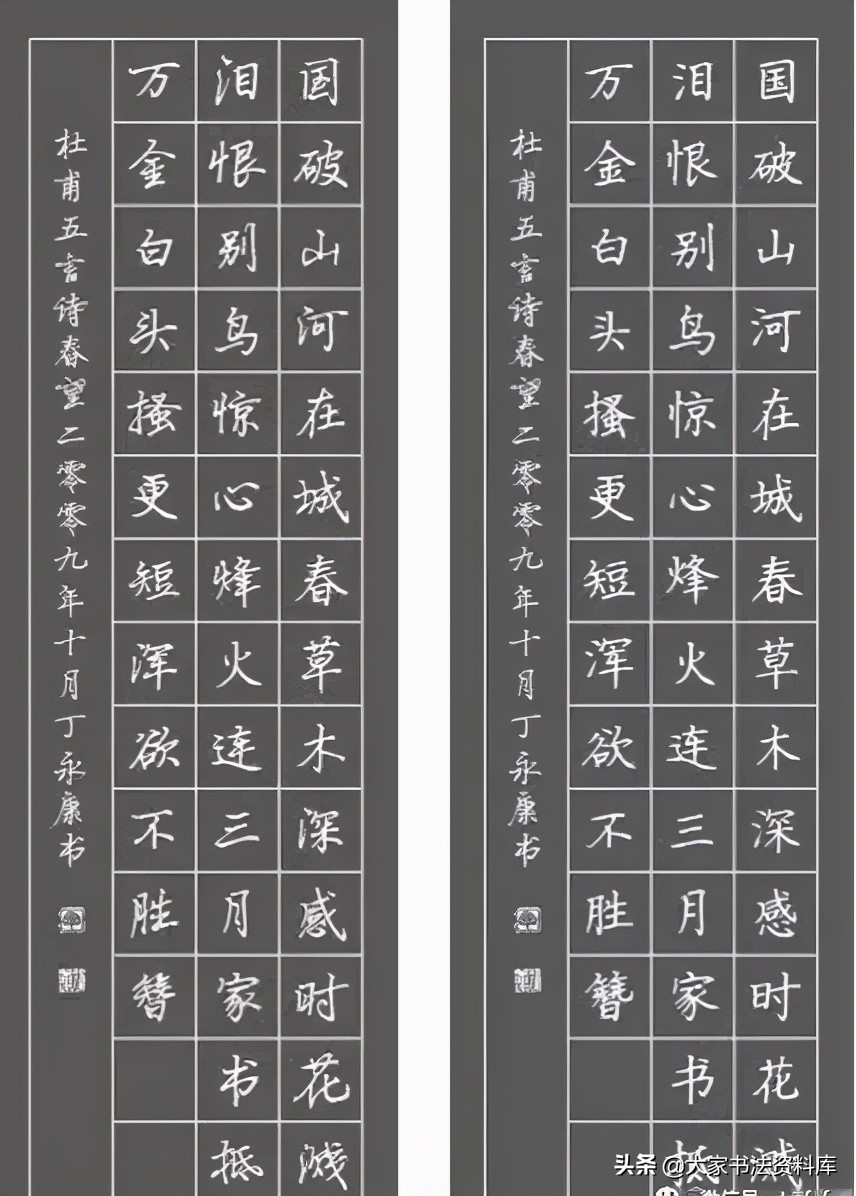 国破山河在城春草木深感时花溅
泪恨别鸟惊心烽火连三月家书抵
万金白头搔更短浑欲不胜簪
杜甫五言诗春望二零零九年十月丁永康书
国破山河在城春草木深感时花溅
泪恨别鸟惊心烽火连三月家书抵
万金白头搔更短浑欲不胜簪
杜甫五言诗春望二零零九年十月丁永康书
头条 @大家书法资料库